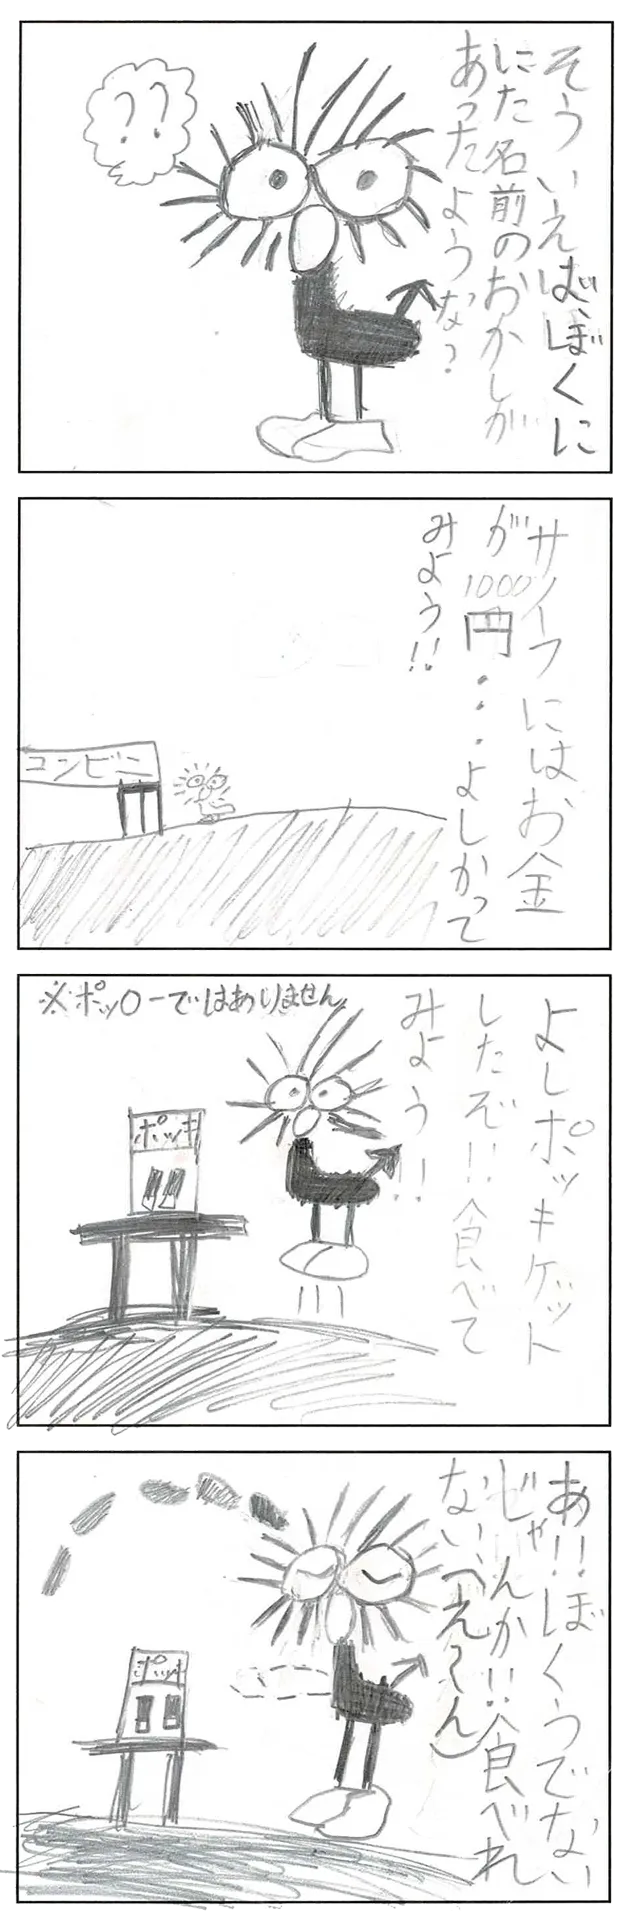 そういえば、ぼくに
にた名前のおかしが
あったような?
??
サイフにはお金
が1000円・・・よしかって
みよう!!
コンビニ
よしポッキゲット
したぞ!!食べて
みよう!!
※ポッ〇ーではありません
ポッキ
あ!!ぼくうでない
じゃんか!!食べれ
ない、(え~ん)
ポッキ